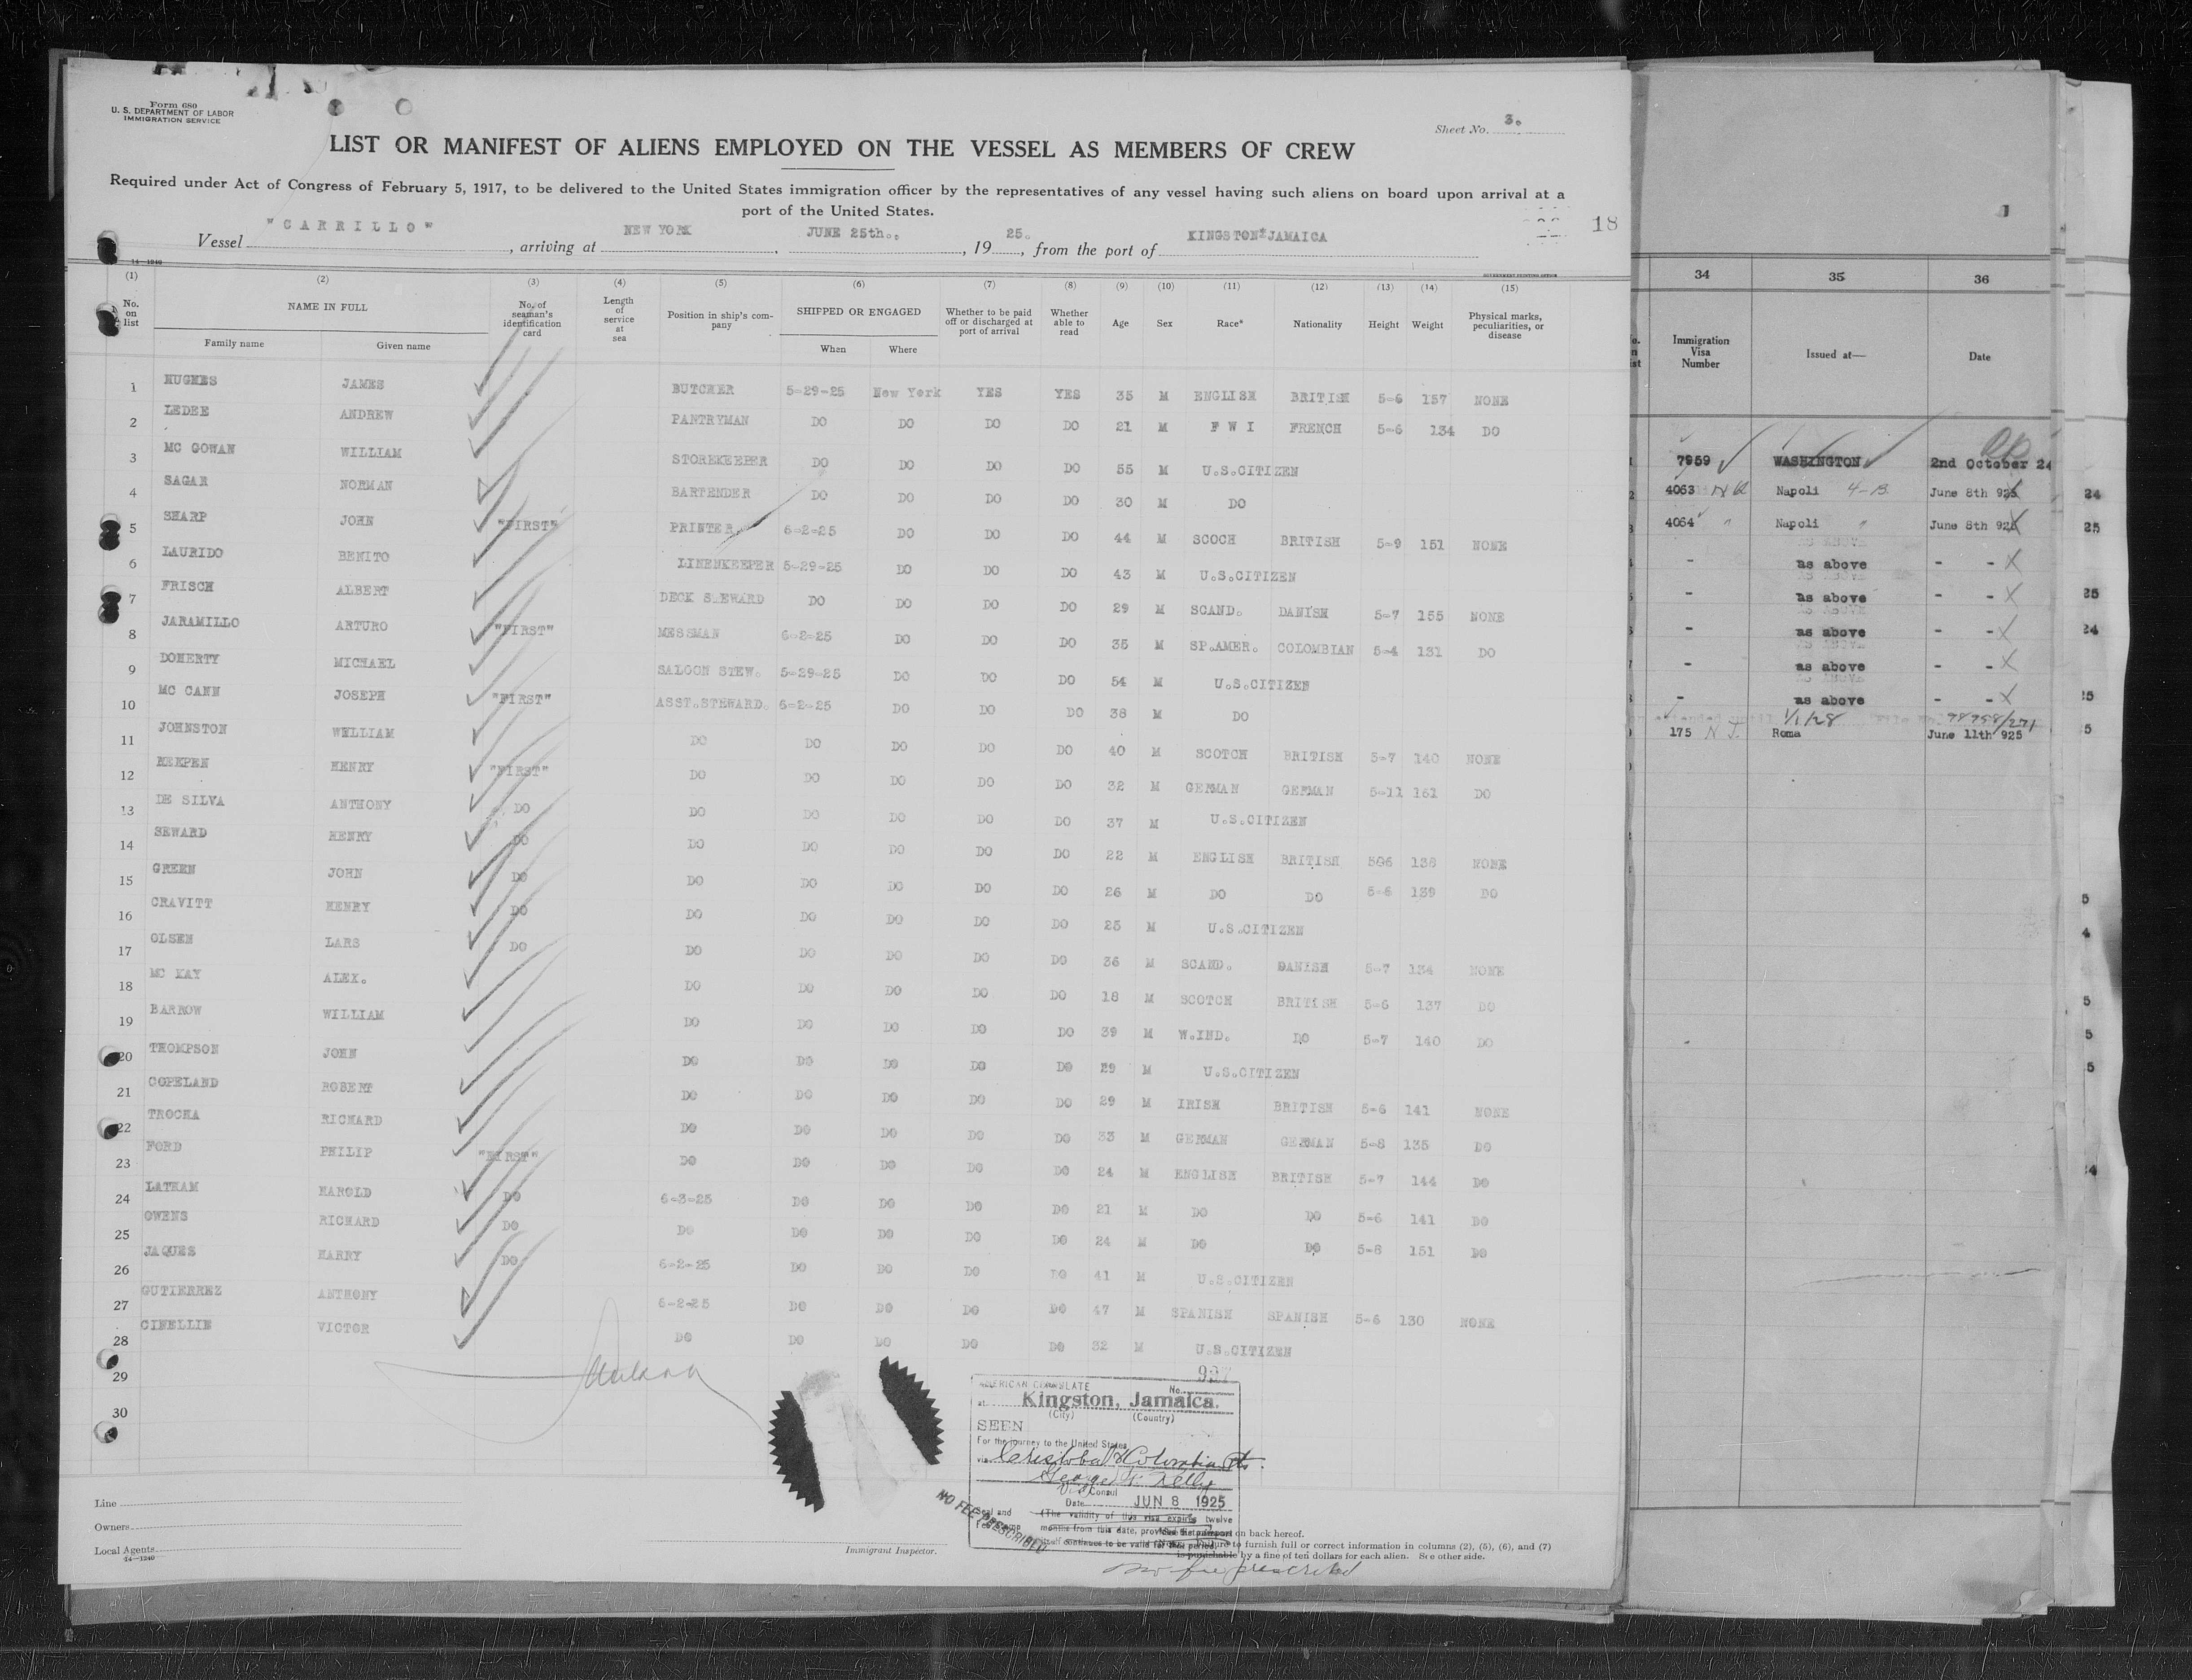 Form 680
U. S. DEPARTMENT OF LABOR
IMMIGRATION SERVICE
Sheet No. 3.
LIST OR MANIFEST OF ALIENS EMPLOYED ON THE VESSEL AS MEMBERS OF CREW
Required under Act of Congress of February 5, 1917, to be delivered to the United States immigration officer by the representatives of any vessel having such aliens on board upon arrival at a
port of the United States.
18
Vessel "CARRILLO", arriving at NEW YORK, JUNE 25th., 1925., from the port of KINGSTON JAMAICA
14—1240
(1) (2) (3) (4) (5) (6) (7) (8) (9) (10) (11) (12) (13) (14) (15)
No. on list NAME IN FULL Family name Given name No. of seaman's identification card Length of service at sea Position in ship's company SHIPPED OR ENGAGED When Where Whether to be paid off or discharged at port of arrival Whether able to read Age Sex Race* Nationality Height Weight Physical marks, peculiarities, or disease
1 HUGHES JAMES BUTCHER 5-29-25 New York YES YES 35 M ENGLISH BRITISH 5-6 157 NONE
2 LEDEE ANDREW PANTRYMAN DO DO DO DO 21 M F W I FRENCH 5-6 134 DO
3 MC GOWAN WILLIAM STOREKEEPER DO DO DO DO 55 M U.S.CITIZEN
4 SAGAR NORMAN BARTENDER DO DO DO DO 30 M DO
5 SHARP JOHN "FIRST" PRINTER 6-2-25 DO DO DO 44 M SCOCH BRITISH 5-9 151 NONE
6 LAURIDO BENITO LINENKEEPER 5-29-25 DO DO DO 43 M U.S.CITIZEN
7 FRISCH ALBERT DECK STEWARD DO DO DO DO 29 M SCAND. DANISH 5-7 155 NONE
8 JARAMILLO ARTURO "FIRST" MESSMAN 6-2-25 DO DO DO 35 M SP.AMER. COLOMBIAN 5-4 131 DO
9 DOHERTY MICHAEL SALOON STEW. 5-29-25 DO DO DO 54 M U.S.CITIZEN
10 MC CANN JOSEPH "FIRST" ASST.STEWARD. 6-2-25 DO DO DO 38 M DO
11 JOHNSTON WELLIAM DO DO DO DO DO 40 M SCOTCH BRITISH 5-7 140 NONE
12 KEEPEN HENRY "FIRST" DO DO DO DO DO 32 M GERMAN GERMAN 5-11 161 DO
13 DE SILVA ANTHONY DO DO DO DO DO DO 37 M U.S.CITIZEN
14 SEWARD HENRY DO DO DO DO DO DO 22 M ENGLISH BRITISH 506 138 NONE
15 GREEN JOHN DO DO DO DO DO DO 26 M DO DO 5-6 139 DO
16 CRAVITT HENRY DO DO DO DO DO DO 25 M U.S.CITIZEN
17 OLSEN LARS DO DO DO DO DO DO 36 M SCAND. DANISH 5-7 134 NONE
18 MC KAY ALEX. DO DO DO DO DO 18 M SCOTCH BRITISH 5-6 137 DO
19 BARROW WILLIAM DO DO DO DO DO 39 M W.IND. DO 5-7 140 DO
20 THOMPSON JOHN DO DO DO DO DO 29 M U.S.CITIZEN
21 COPELAND ROBERT DO DO DO DO DO 29 M IRISH BRITISH 5-6 141 NONE
22 TROCHA RICHARD DO DO DO DO DO 33 M GERMAN GERMAN 5-8 135 DO
23 FORD PHILIP "FIRST" DO DO DO DO DO 24 M ENGLISH BRITISH 5-7 144 DO
24 LATHAM HAROLD DO 6-3-25 DO DO DO DO 21 M DO DO 5-6 141 DO
25 OWENS RICHARD DO DO DO DO DO DO 24 M DO DO 5-8 151 DO
26 JAQUES HARRY DO 6-2-25 DO DO DO DO 41 M U.S.CITIZEN
27 GUTIERREZ ANTHONY 6-2-25 DO DO DO DO 47 M SPANISH SPANISH 5-6 130 NONE
28 CINELLIE VICTOR DO DO DO DO DO 32 M U.S.CITIZEN
29
30
AMERICAN CONSULATE No. 997
at Kingston, Jamaica.
(City) (Country)
SEEN
For the journey to the United States
via Cristobal & Colombian Pts.
George G. Kelly
Vice Consul
Date JUN 8 1925
(The validity of this visa expires twelve
months from this date, provided the passport
itself continues to be valid for that period.
NO FEE PRESCRIBED
on back hereof.
to furnish full or correct information in columns (2), (5), (6), and (7)
is punishable by a fine of ten dollars for each alien. See other side.
No fee prescribed
Line
Owners
Local Agents
14—1240
Immigrant Inspector.
34 35 36
Immigration Visa Number Issued at— Date
7959 WASHINGTON 2nd October 24
4063 Napoli 4-B June 8th 925
4064 " Napoli " June 8th 925
- as above - -
- as above - -
- as above - -
- as above - -
- as above - -
1/1/28 98958/271
175 N J. Roma June 11th 925
24
25
25
24
25
5
5
4
5
5
5
24